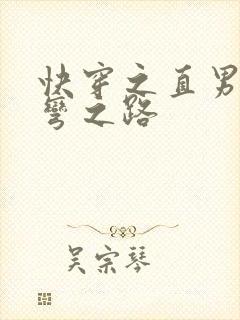 快穿之直男
弯之路
吴宗琴